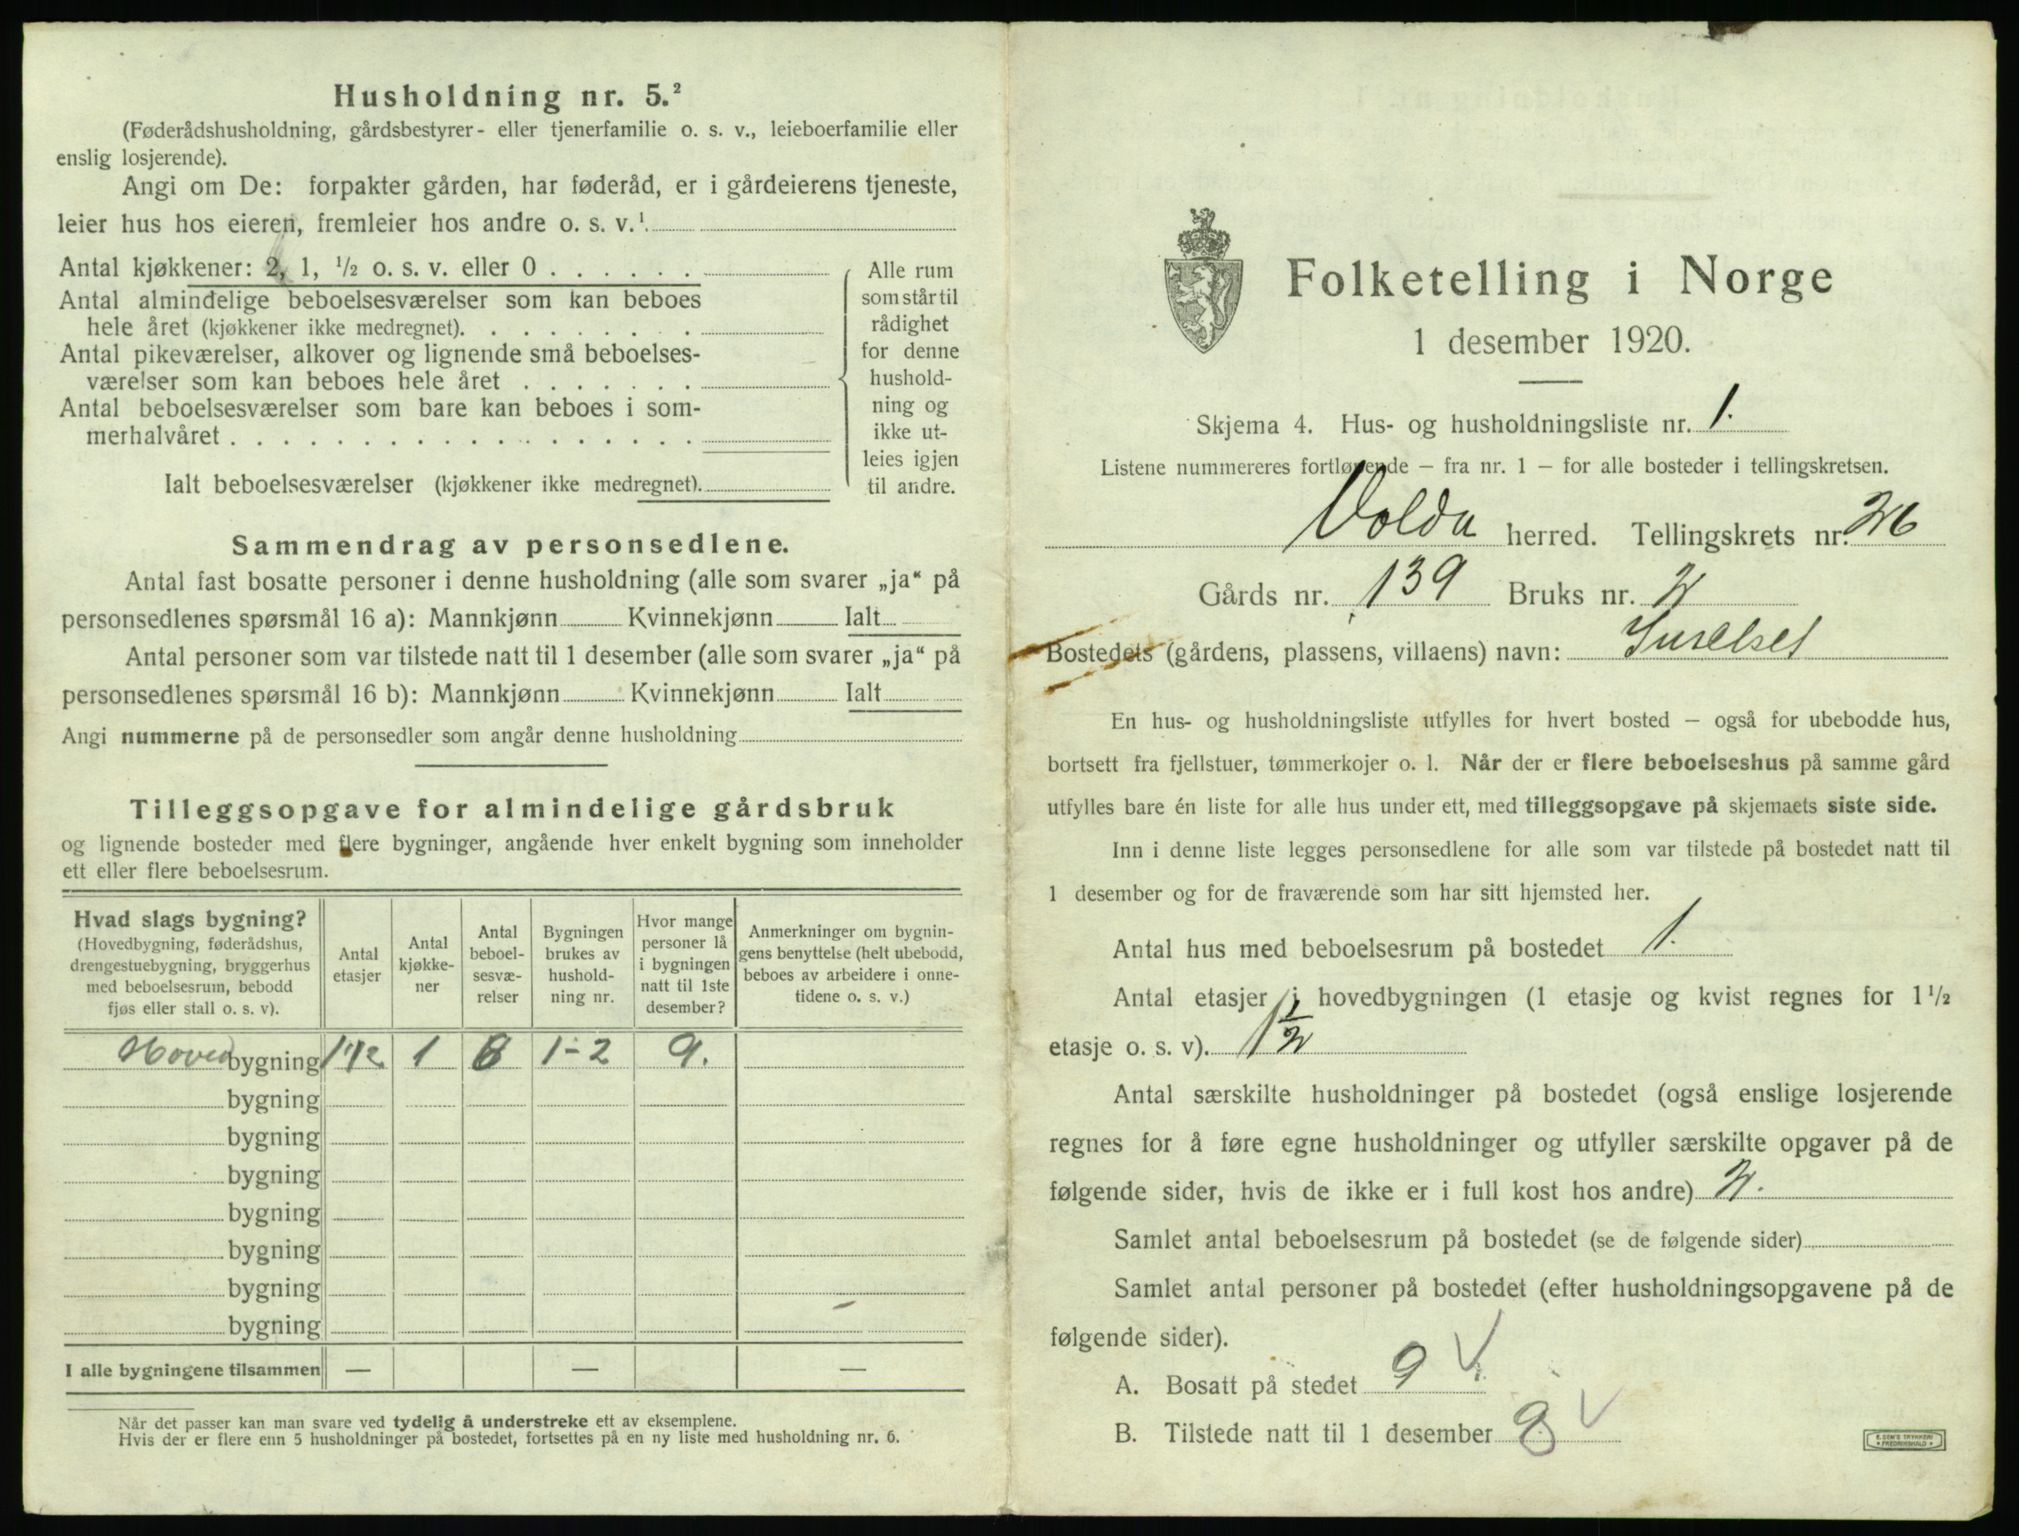 Husholdning nr. 5.²
(Føderådshusholdning, gårdsbestyrer- eller tjenerfamilie o. s. v., leieboerfamilie eller
enslig losjerende).
Angi om De: forpakter gården, har føderåd, er i gårdeierens tjeneste,
leier hus hos eieren, fremleier hos andre o. s. v.¹
Antal kjøkkener: 2, 1, ½ o. s. v. eller 0
Antal almindelige beboelsesværelser som kan beboes
hele året (kjøkkener ikke medregnet).
Antal pikeværelser, alkover og lignende små beboelses-
værelser som kan beboes hele året
Antal beboelsesværelser som bare kan beboes i som-
merhalvåret
Ialt beboelsesværelser (kjøkkener ikke medregnet).
Alle rum
som står til
rådighet
for denne
hushold-
ning og
ikke ut-
leies igjen
til andre.
Sammendrag av personsedlene.
Antal fast bosatte personer i denne husholdning (alle som svarer „ja“ på
personsedlenes spørsmål 16 a): Mannkjønn Kvinnekjønn Ialt
Antal personer som var tilstede natt til 1 desember (alle som svarer „ja“ på
personsedlenes spørsmål 16 b): Mannkjønn Kvinnekjønn Ialt
Angi nummerne på de personsedler som angår denne husholdning
Tilleggsopgave for almindelige gårdsbruk
og lignende bosteder med flere bygninger, angående hver enkelt bygning som inneholder
ett eller flere beboelsesrum.
Hvad slags bygning?
(Hovedbygning, føderådshus,
drengestuebygning, bryggerhus
med beboelsesrum, bebodd
fjøs eller stall o. s. v).
Antal
etasjer
Antal
kjøkke-
ner
Antal
beboel-
sesvæ-
relser
Bygningen
brukes av
hushold-
ning nr.
Hvor mange
personer lå
i bygningen
natt til 1ste
desember?
Anmerkninger om bygnin-
gens benyttelse (helt ubebodd,
beboes av arbeidere i onne-
tidene o. s. v.)
Hoved bygning 1 1/2 1 6 1-2 9.
bygning
bygning
bygning
bygning
bygning
bygning
bygning
I alle bygningene tilsammen — — —
Når det passer kan man svare ved tydelig å understreke ett av eksemplene.
Hvis der er flere enn 5 husholdninger på bostedet, fortsettes på en ny liste med husholdning nr. 6.
Folketelling i Norge
1 desember 1920.
Skjema 4. Hus- og husholdningsliste nr. 1.
Listene nummereres fortløpende – fra nr. 1 – for alle bosteder i tellingskretsen.
Volda herred. Tellingskrets nr. 26
Gårds nr. 139 Bruks nr. 2
Bostedets (gårdens, plassens, villaens) navn:
En hus- og husholdningsliste utfylles for hvert bosted – også for ubebodde hus,
bortsett fra fjellstuer, tømmerkojer o. l. Når der er flere beboelseshus på samme gård
utfylles bare én liste for alle hus under ett, med tilleggsopgave på skjemaets siste side.
Inn i denne liste legges personsedlene for alle som var tilstede på bostedet natt til
1 desember og for de fraværende som har sitt hjemsted her.
Antal hus med beboelsesrum på bostedet 1.
Antal etasjer i hovedbygningen (1 etasje og kvist regnes for 1½
etasje o. s. v). 1 1/2
Antal særskilte husholdninger på bostedet (også enslige losjerende
regnes for å føre egne husholdninger og utfyller særskilte opgaver på de
følgende sider, hvis de ikke er i full kost hos andre) 2.
Samlet antal beboelsesrum på bostedet (se de følgende sider)
Samlet antal personer på bostedet (efter husholdningsopgavene på de
følgende sider).
A. Bosatt på stedet 9 V
B. Tilstede natt til 1 desember 9 V
E. SEM'S TRYKKERI
• FREDRIKSHALD •